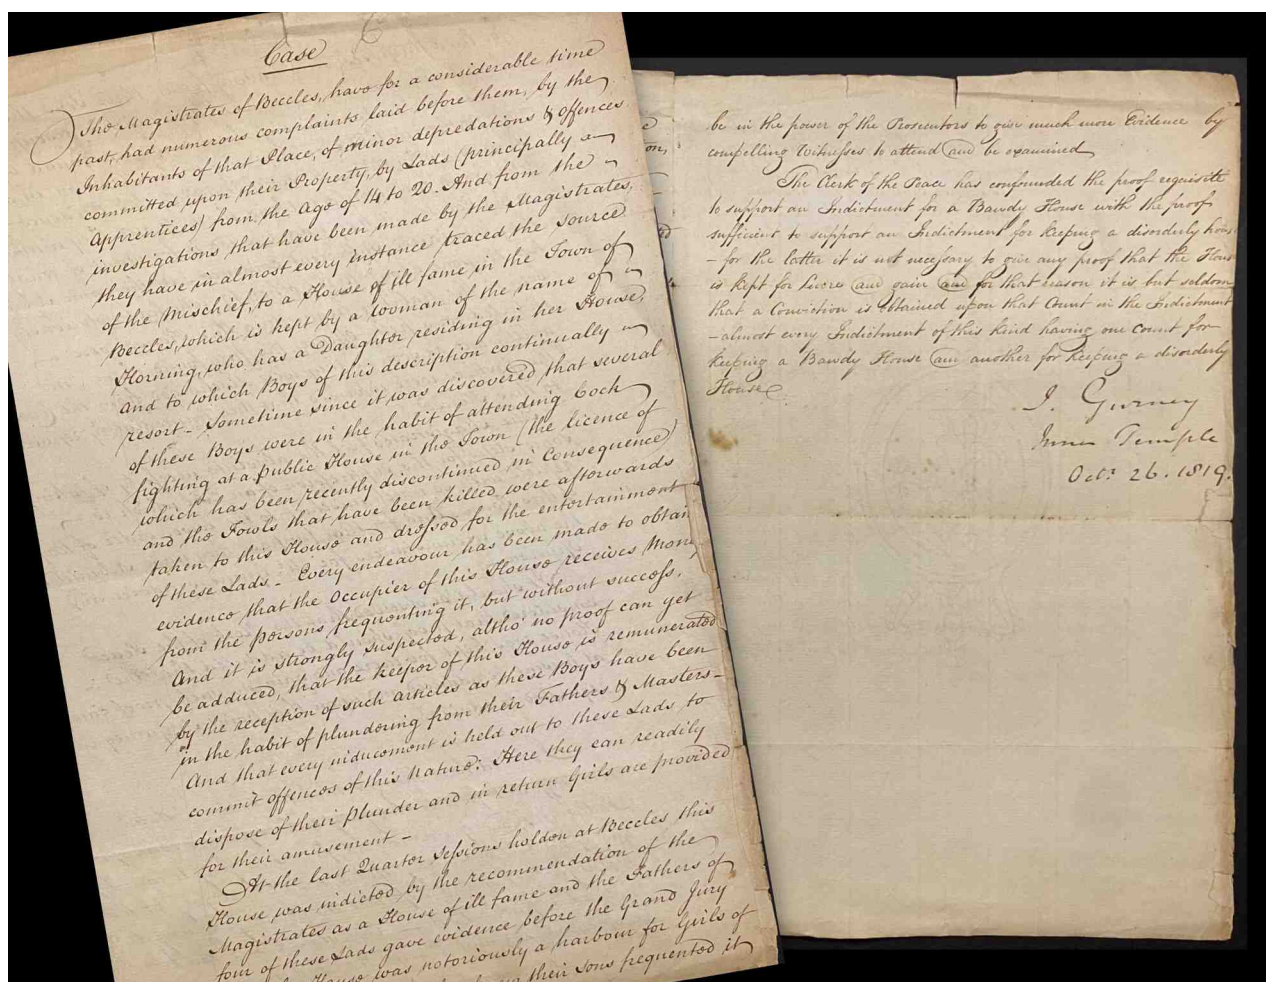 Case
The Magistrates of Beccles, have for a considerable time
past, had numerous complaints laid before them, by the
Inhabitants of that Place, of minor depredations & offences
committed upon their Property, by Lads (principally
Apprentices) from the Age of 14 to 20. And from the
investigations that have been made by the Magistrates,
they have in almost every instance traced the source
of the Mischief, to a House of ill fame in the Town of
Beccles, which is kept by a woman of the name of
Horning, who has a Daughter residing in her House,
and to which Boys of this description continually
resort - Sometime since it was discovered that several
of these Boys were in the habit of attending Cock
fighting at a public House in the Town (the licence of
which has been recently discontinued in Consequence)
and the Fowls that have been killed were afterwards
taken to this House and dressed for the entertainment
of these Lads - Every endeavour has been made to obtain
evidence that the Occupier of this House receives Mon
from the persons frequenting it, but without success,
And it is strongly suspected, altho' no proof can yet
be adduced, that the keeper of this House is remunerated
by the reception of such articles as these Boys have been
in the habit of plundering from their Fathers & Masters -
And that every inducement is held out to these Lads to
commit offences of this nature: Here they can readily
dispose of their plunder and in return Girls are provided
for their amusement -
At the last Quarter Sessions holden at Beccles this
House was indicted by the recommendation of the
Magistrates as a House of ill fame and the Fathers of
four of these Lads gave evidence before the Grand Jury
House was notoriously a harbour for Girls of
their sons frequented it
be in the power of the Prosecutors to give much more Evidence by
compelling Witnesses to attend and be examined
The Clerk of the Peace has confounded the proof requisite
to support an Indictment for a Bawdy House with the proof
sufficient to support an Indictment for keeping a disorderly hous
- for the latter it is not necessary to give any proof that the Hous
is kept for lucre and gain and for that reason it is but seldom
that a Conviction is obtained upon that Count in the Indictment
- almost every Indictment of this kind having one count for
keeping a Bawdy House and another for keeping a disorderly
House
J. Gurney
Inner Temple
Octr. 26. 1819.